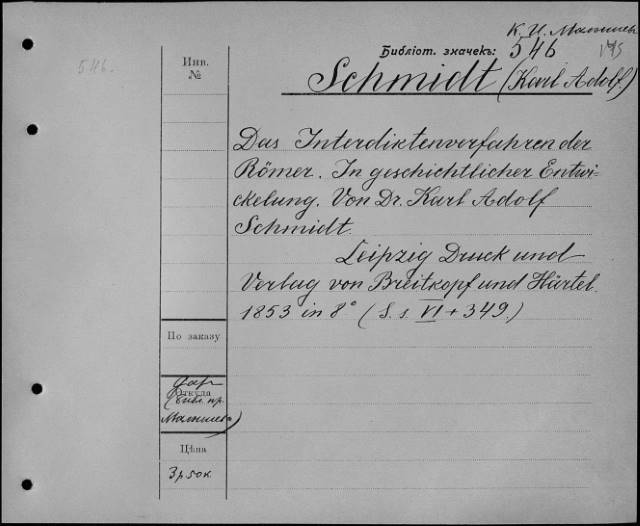 К. И. Малышев
Библiот. значекъ: 546
145
546.
Инв.
№
Schmidt (Karl Adolf.)
Das Interdiktenverfahren der
Römer. In geschichtlicher Entwi-
ckelung. Von Dr. Karl Adolf
Schmidt.
Leipzig Druck und
Verlag von Breitkopf und Härtel.
1853 in 8° (S. s. VI + 349.)
По заказу
Откуда
Дар
(библ. пр.
Малышева)
Цѣна
3 р 50 к.